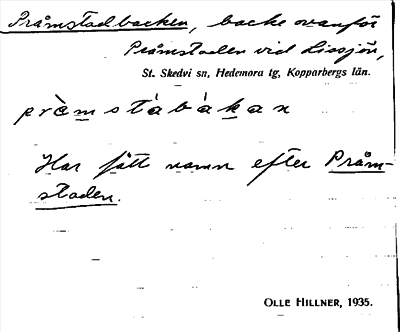 Pråmstadbacken, backe ovanför
Pråmstaden vid Lissjön,
St. Skedvi sn, Hedemora tg, Kopparbergs län.
pràmstábákan
Har fått namn efter Pråm-
staden.
OLLE HILLNER, 1935.